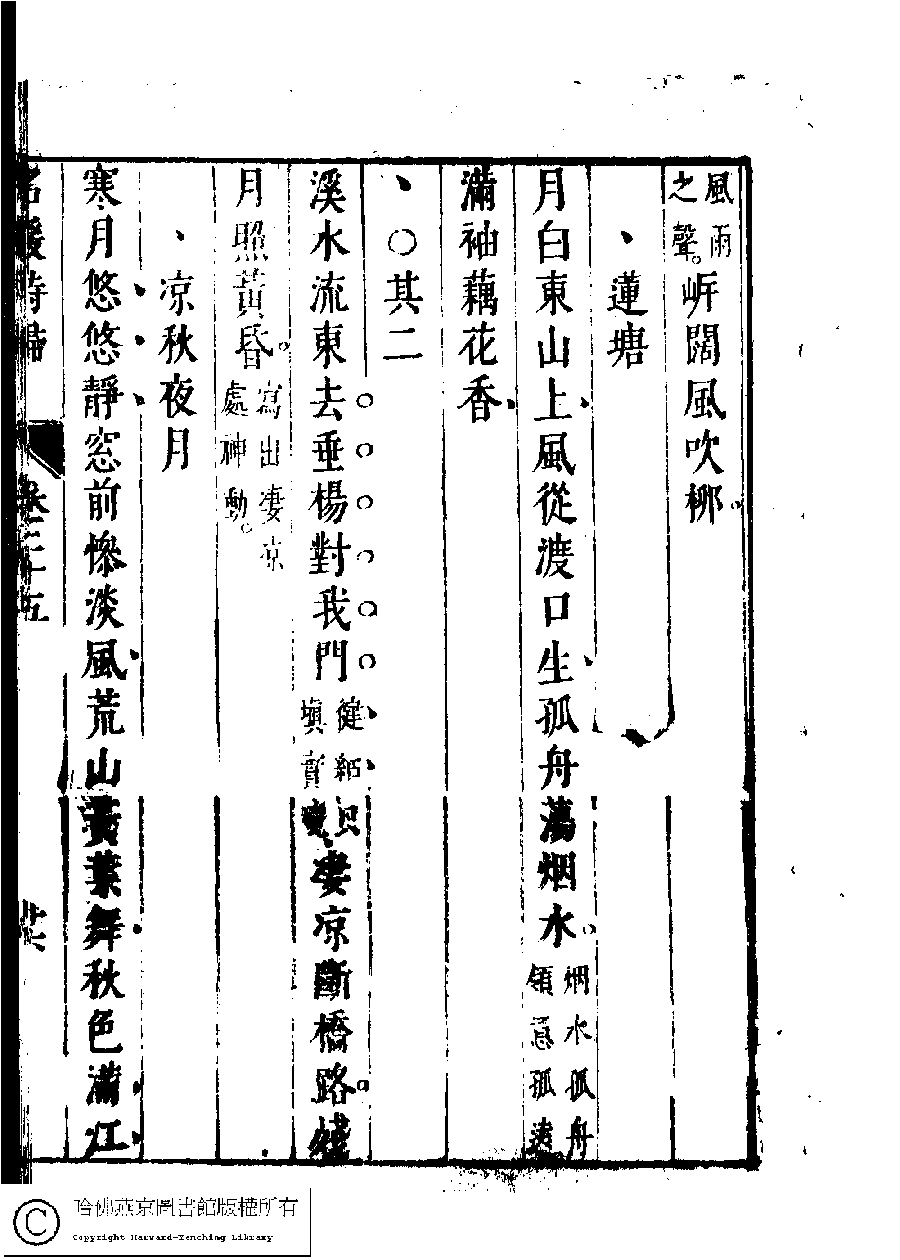 風雨
之聲。岸闊風吹柳。
、蓮塘
月白東山上風從渡口生孤舟蕩烟水。烟水孤舟
領意孤遠
滿袖藕花香
、○其二
溪水流東去垂楊對我門
淒凉斷橋路
月照黃昏。寫出凄凉
處神動。
、凉秋夜月
寒月悠悠靜窓前慘淡風荒山黃葉舞秋色滿江
名媛詩歸
卷二十五
Copyright Harvard-Yenching Library
哈佛燕京圖書館版權所有